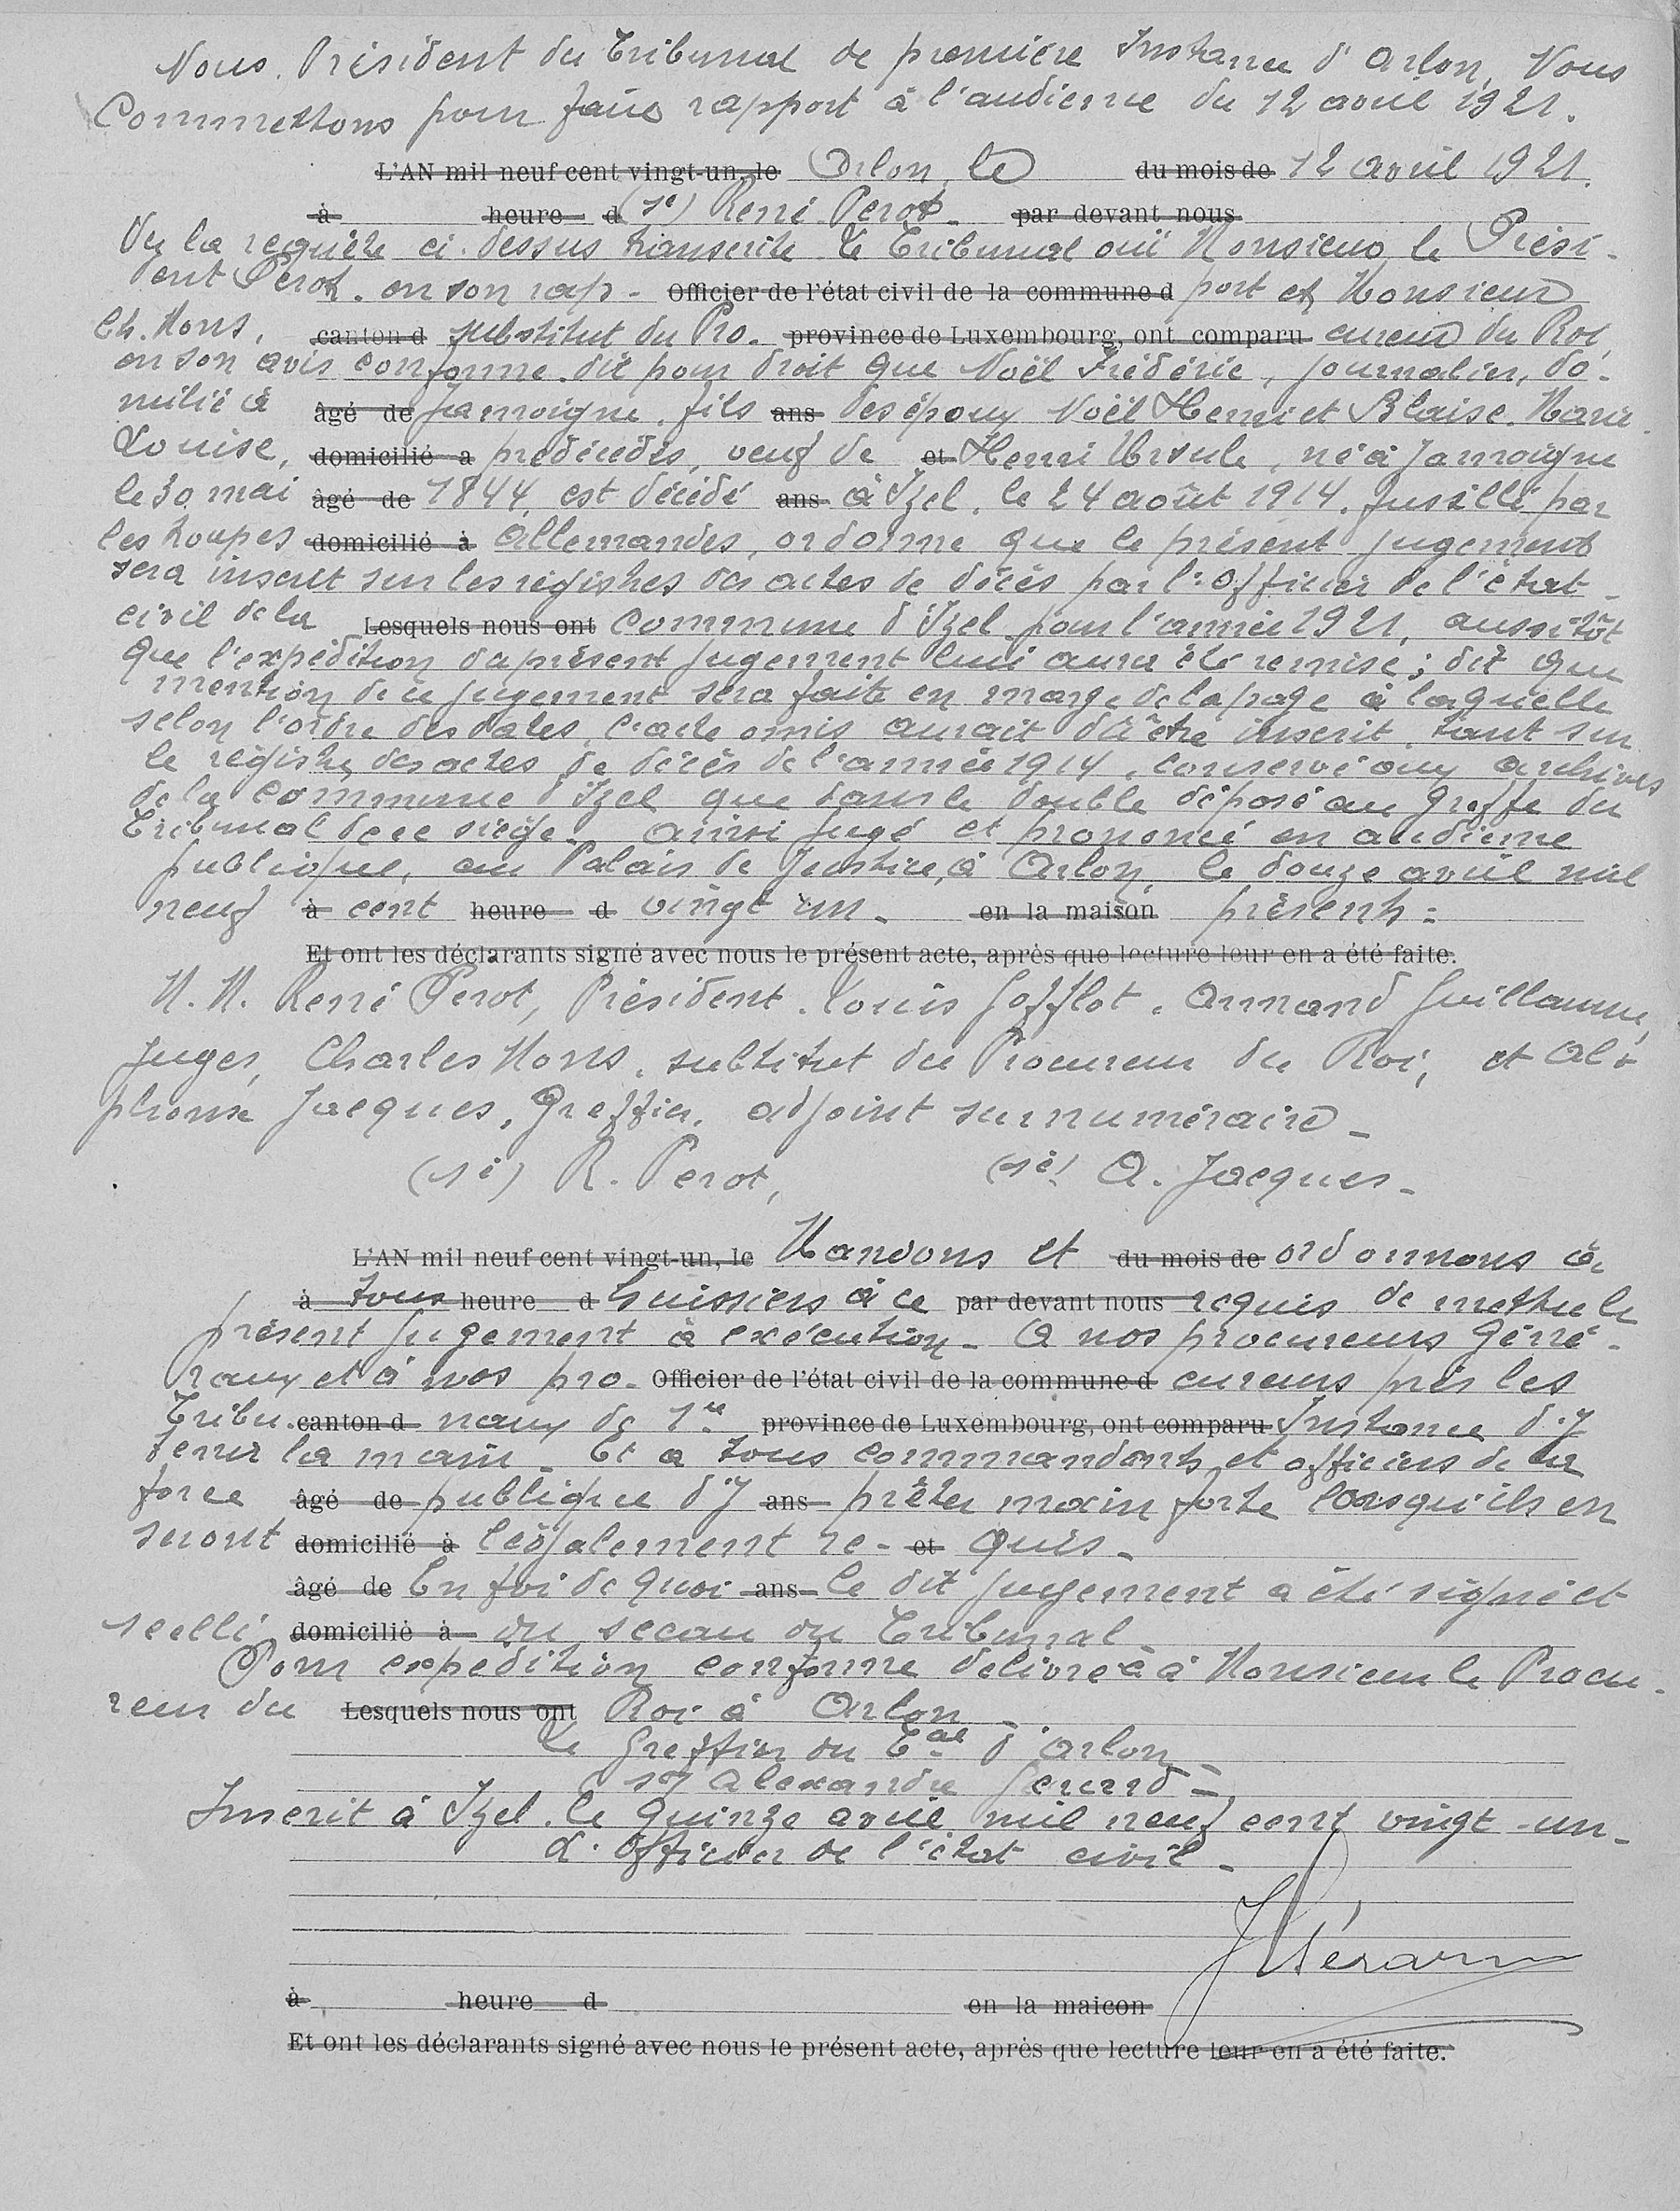 Nous, Président du Tribunal de première Instance d'Arlon, Nous
Commettons pour faire rapport à l'audience du 12 avril 1921.
L'AN mil neuf cent vingt-un, le Arlon, le du mois de 12 avril 1921.
à heure d (sé) René Perot. par devant nous
Vu la requête ci-dessus transcrite le Tribunal ouï Monsieur le Prési-
dent Perot. en son rap- Officier de l'état civil de la commune d port et Monsieur
Ch. Mons, canton d substitut du Pro- province de Luxembourg, ont comparu cureur du Roi,
en son avis conforme. dit pour droit que Noël Frédéric, journalier, do-
milié à âgé de Jamoigne, fils ans des époux Noël Henri et Blaise. Marie
Louise, domicilié a prédécédés, veuf de et Henri Ursule, né à Jamoigne
le 30 mai âgé de 1844, est décédé ans à Izel, le 24 août 1914, fusillé par
les troupes domicilié à Allemandes, ordonne que le présent jugement
sera inscrit sur les registres des actes de décès par l'officier de l'état
civil de la Lesquels nous ont Commune d'Izel pour l'année 1921, aussitôt
que l'expédition du présent jugement lui aura été remise; dit que
mention de ce jugement sera faite en marge de la page à laquelle
selon l'ordre des dates, l'acte omis aurait dû être inscrit, tant sur
le registre des actes de décès de l'année 1914, conservé aux archives
de la Commune d'Izel que dans le double déposé au Greffe du
Tribunal de ce siège. Ainsi jugé et prononcé en audience
publique, au Palais de Justice, à Arlon, le douze avril mil
neuf à cent heure d vingt un- en la maison présents:
Et ont les déclarants signé avec nous le présent acte, après que lecture leur en a été faite.
M.M. René Perot, Président. Louis Gofflot. Armand Guillaume,
Juges, Charles Mons, subtitut du Procureur du Roi, et Al-
phonse Jacques, Greffier, adjoint surnuméraire-
(sé) R. Perot, (sé) A. Jacques-
L'AN mil neuf cent vingt-un, le Mandons et du mois de ordonnons à
à tous heure d huissiers à ce par devant nous requis de mettre le
présent jugement à exécution- A nos procureurs géné-
raux et à nos pro- Officier de l'état civil de la commune d cureurs près les
Tribu- canton d naux de 1re province de Luxembourg, ont comparu Instance d'y
tenir la main- Et a tous commandants et officiers de la
force âgé de publique d'y ans prêter main forte lorsqu'ils en
seront domicilié à légalement re- et quis-
âgé de En foi de quoi ans le dit jugement a été signé et
scellé domicilié à du sceau du Tribunal-
Pour expédition conforme délivrée à Monsieur le Procu-
reur du Lesquels nous ont Roi à Arlon-
Le Greffier du Tal d'Arlon
Alexandre
Inscrit à Izel, le quinze avril mil neuf cent vingt-un-
L'officier de l'état civil-
à heure d en la maison
Et ont les déclarants signé avec nous le présent acte, après que lecture leur en a été faite.